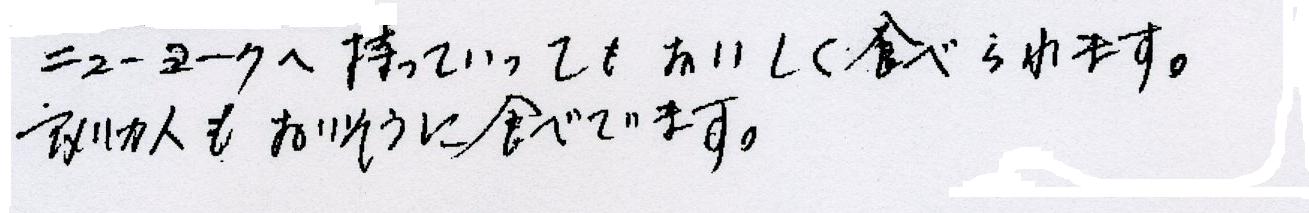 ニューヨークへ持っていってもおいしく食べられます。
アメリカ人もおいしそうに食べてます。